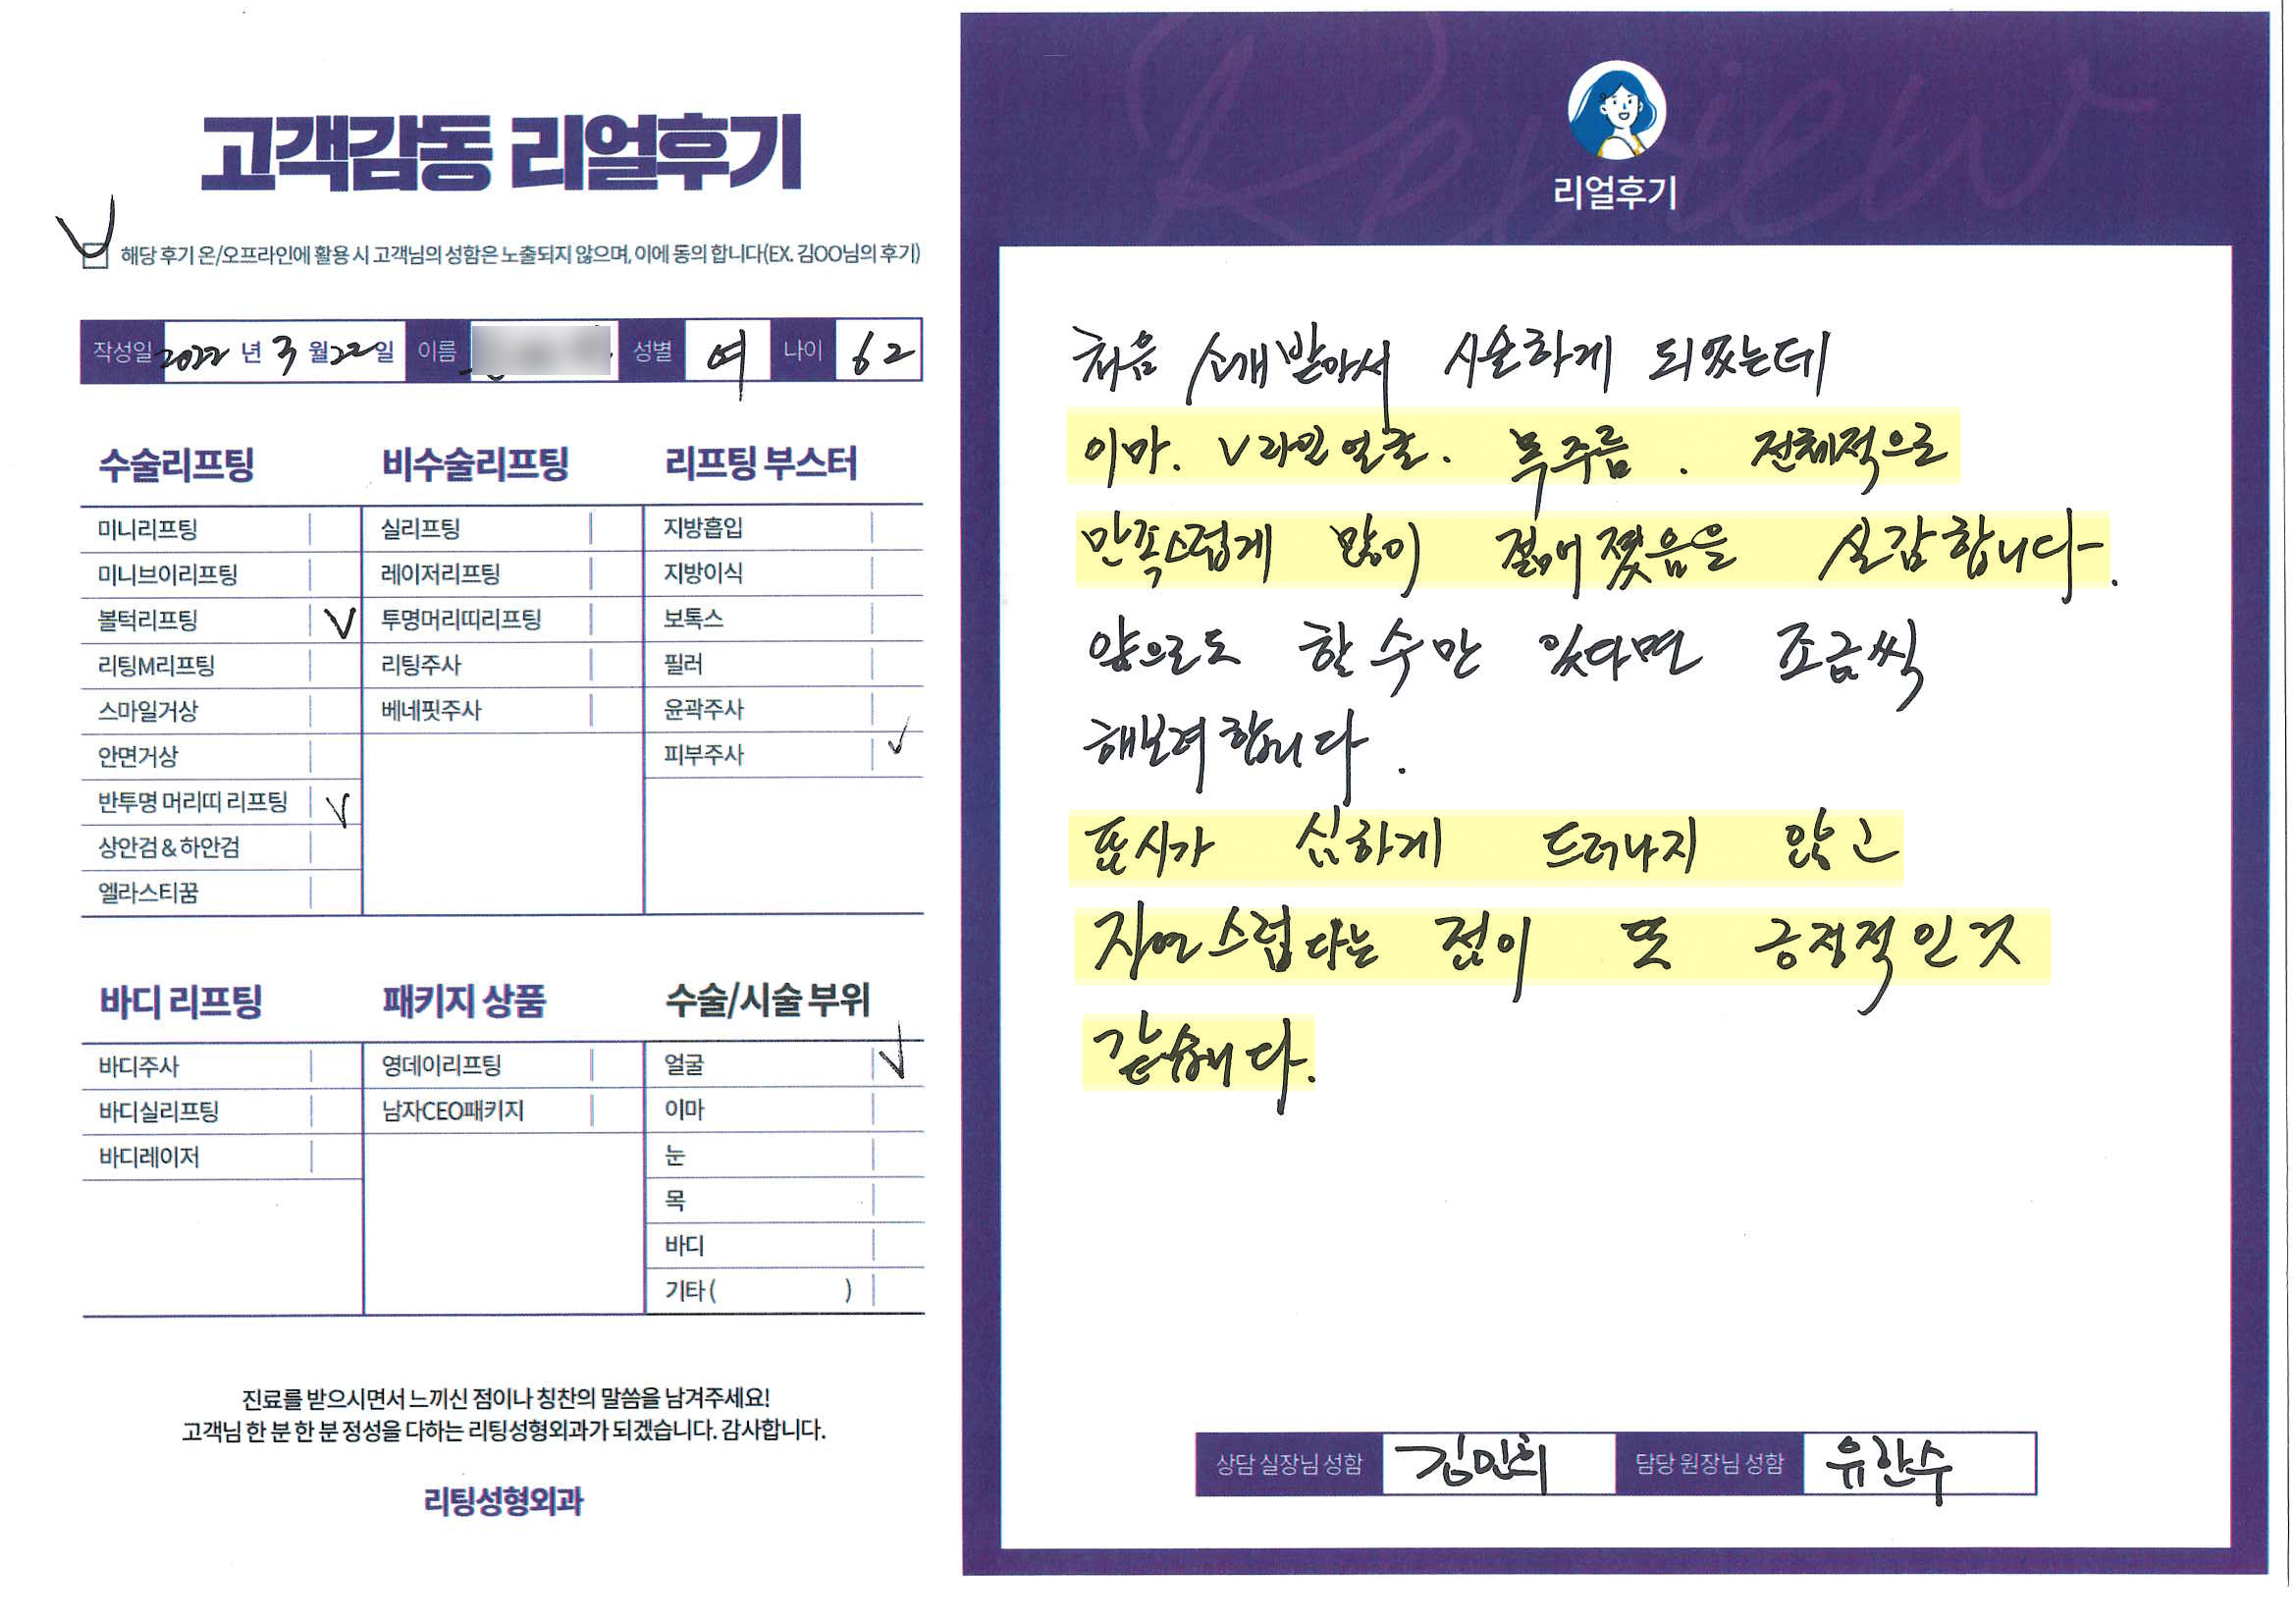 고객감동 리얼후기
해당 후기 온/오프라인에 활용 시 고객님의 성함은 노출되지 않으며, 이에 동의 합니다(EX. 김OO님의 후기)
작성일 2022 년 3 월 22 일 이름 성별 여 나이 62
수술리프팅
미니리프팅
미니브이리프팅
볼턱리프팅 V
리팅M리프팅
스마일거상
안면거상
반투명 머리띠 리프팅 V
상안검 & 하안검
엘라스티꿈
비수술리프팅
실리프팅
레이저리프팅
투명머리띠리프팅
리팅주사
베네핏주사
리프팅 부스터
지방흡입
지방이식
보톡스
필러
윤곽주사
피부주사 ✓
바디 리프팅
바디주사
바디실리프팅
바디레이저
패키지 상품
영데이리프팅
남자CEO패키지
수술/시술 부위
얼굴 V
이마
눈
목
바디
기타 ( )
진료를 받으시면서 느끼신 점이나 칭찬의 말씀을 남겨주세요!
고객님 한 분 한 분 정성을 다하는 리팅성형외과가 되겠습니다. 감사합니다.
리팅성형외과
Review
리얼후기
처음 소개받아서 시술하게 되었는데
이마. V라인얼굴. 목주름. 전체적으로
만족스럽게 많이 젊어졌음을 실감합니다.
앞으로도 할 수만 있다면 조금씩
해보려 합니다.
표시가 심하게 드러나지 않고
자연스럽다는 점이 또 긍정적인 것
같습니다.
상담 실장님 성함 김민희 담당 원장님 성함 유한수